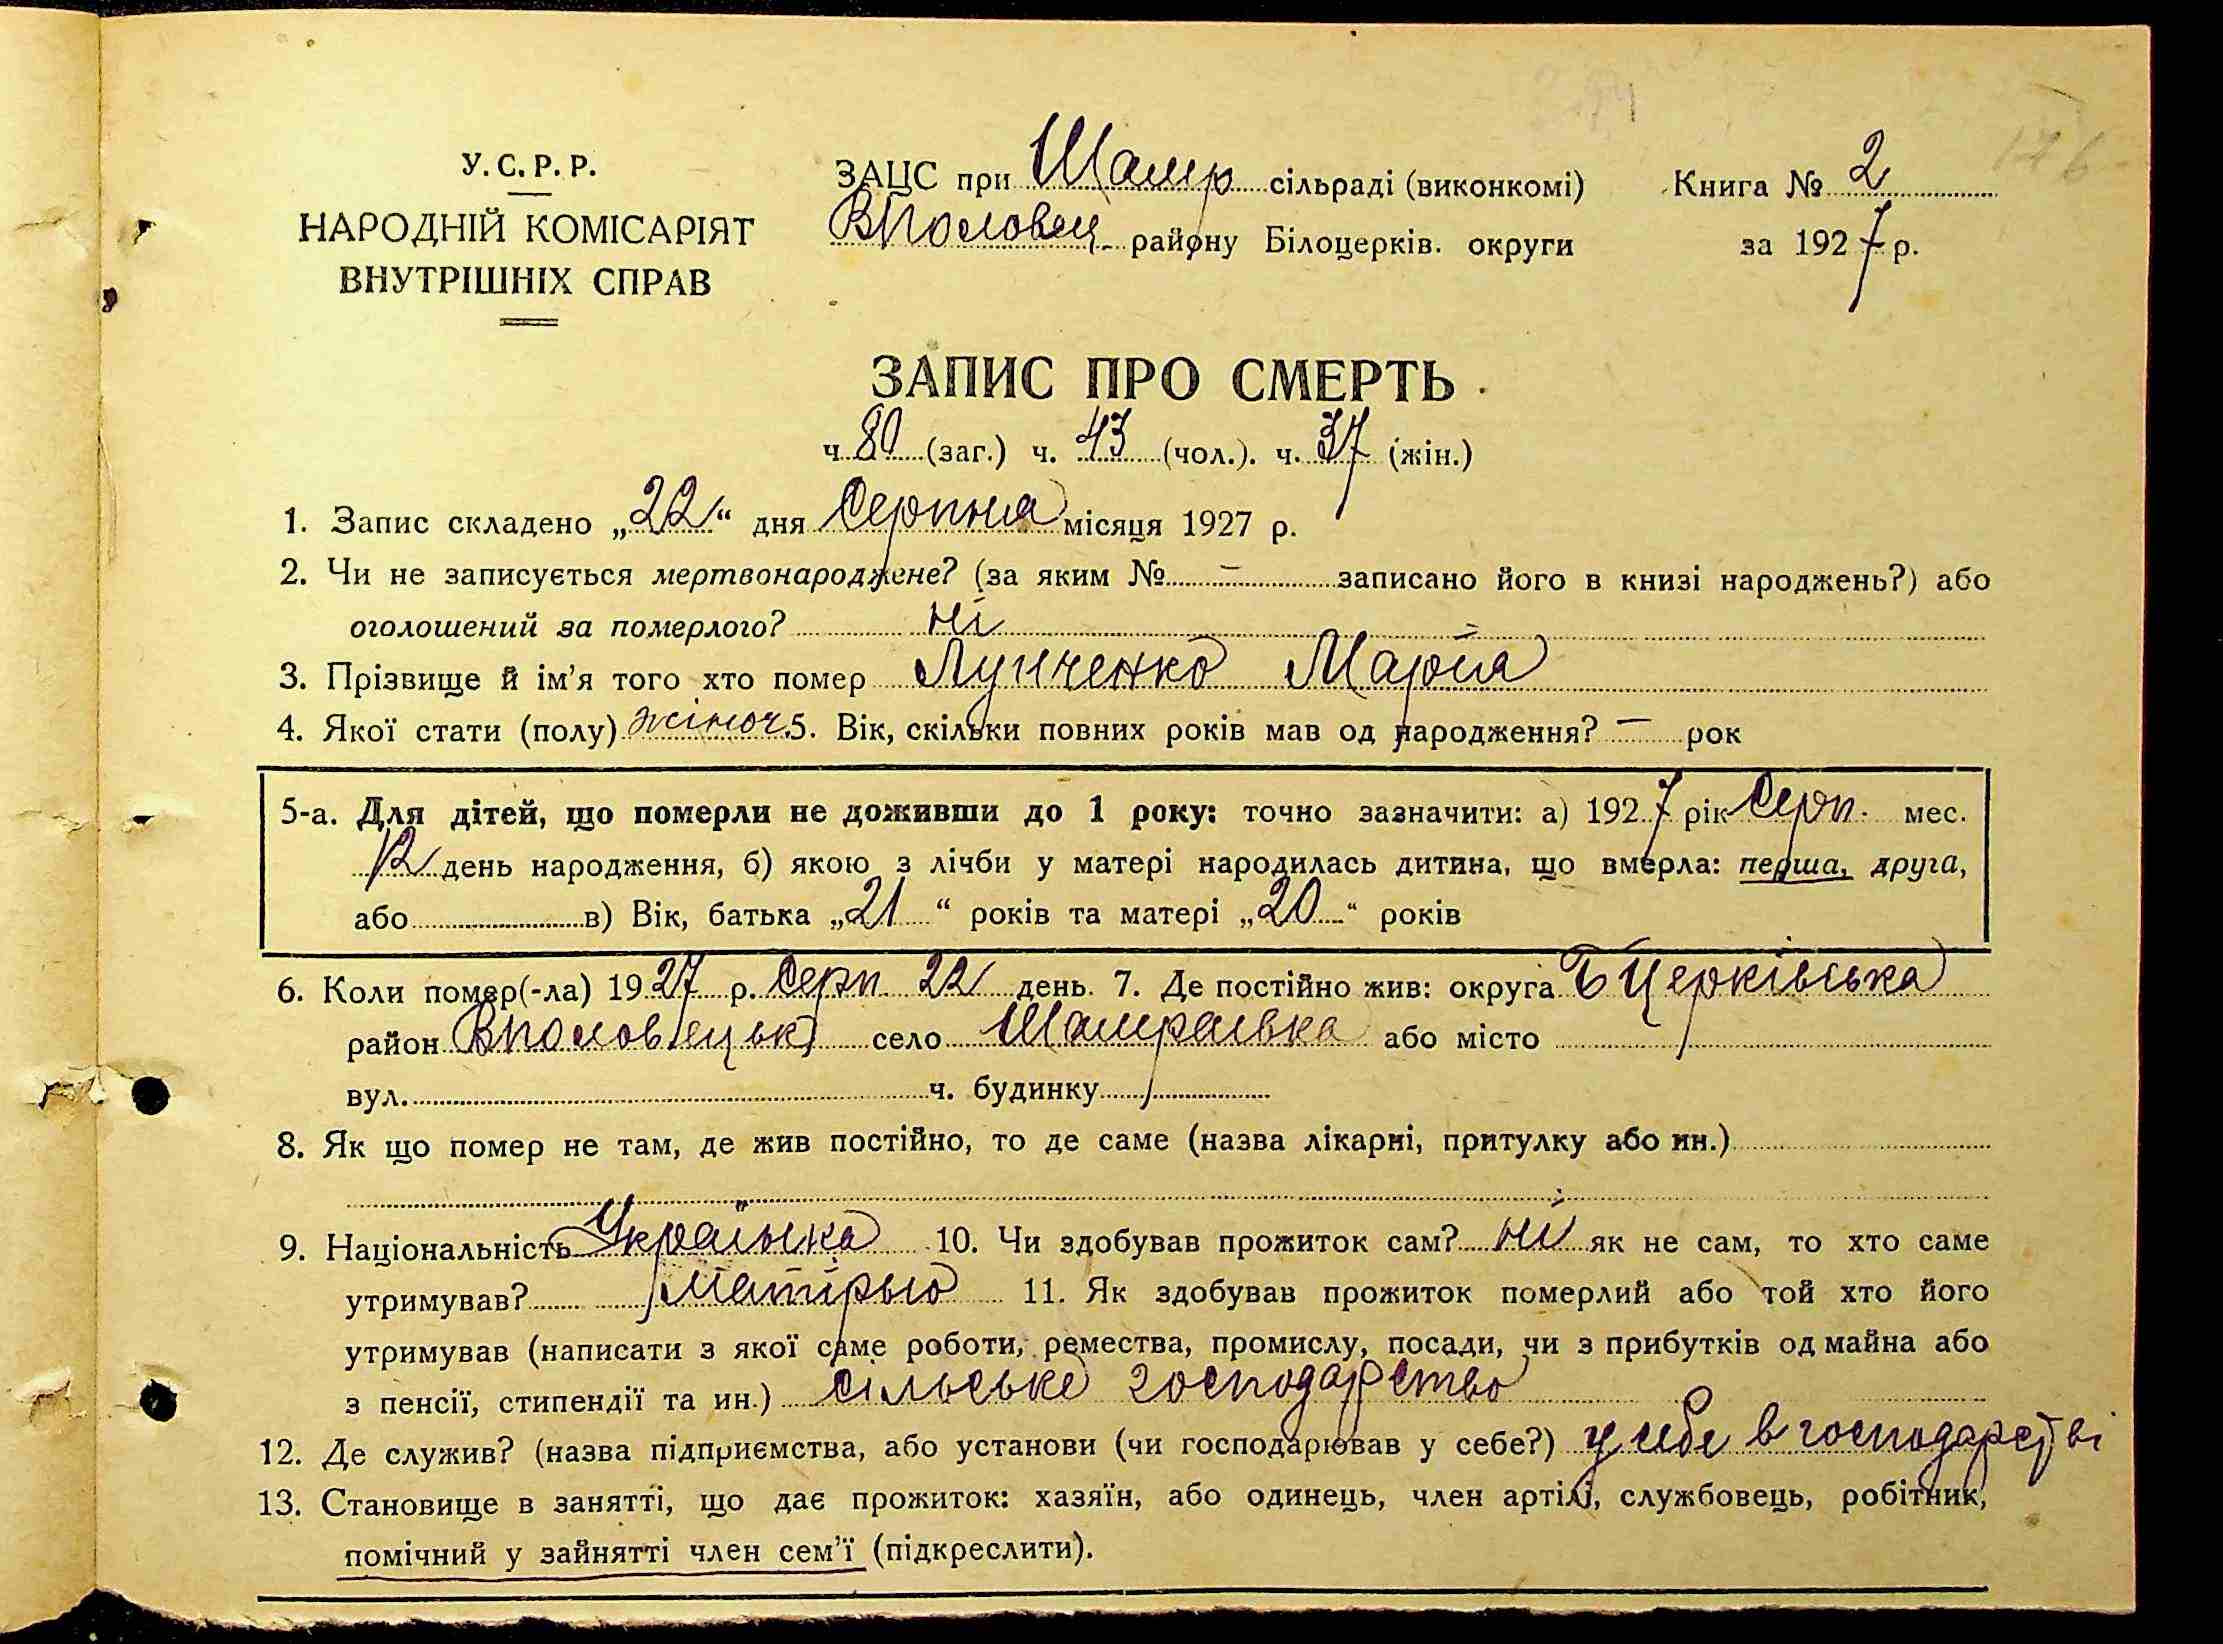 У.С.Р.Р.
НАРОДНІЙ КОМІСАРІЯТ
ВНУТРІШНІХ СПРАВ
ЗАЦС при Шамр сільраді (виконкомі)
ВПоловец. району Білоцерків. округи
Книга № 2
за 1927 р.
176
ЗАПИС ПРО СМЕРТЬ
ч. 80 (заг.) ч. 43 (чол.). ч. 37 (жін.)
1. Запис складено „22“ дня Серпня місяця 1927 р.
2. Чи не записується мертвонароджене? (за яким № — записано його в книзі народжень?) або
оголошений за померлого? ні
3. Прізвище й ім'я того хто помер Лупченко Марія
4. Якої стати (полу) жіноч. 5. Вік, скільки повних років мав од народження? — рок
5-а. Для дітей, що померли не доживши до 1 року: точно зазначити: а) 1927 рік Серп. мес.
12 день народження, б) якою з лічби у матері народилась дитина, що вмерла: перша, друга,
або в) Вік, батька „21“ років та матері „20“ років
6. Коли помер(-ла) 1927 р. Серп 22 день. 7. Де постійно жив: округа БЦерківська
район ВПоловецьк село Шамраівка або місто
вул. ч. будинку
8. Як що помер не там, де жив постійно, то де саме (назва лікарні, притулку або ин.)
9. Національність Українка 10. Чи здобував прожиток сам? ні як не сам, то хто саме
утримував? матірью 11. Як здобував прожиток померлий або той хто його
утримував (написати з якої саме роботи, ремества, промислу, посади, чи з прибутків од майна або
з пенсії, стипендії та ин.) сільське господарство
12. Де служив? (назва підприємства, або установи (чи господарював у себе?) у себе в господарстві
13. Становище в занятті, що дає прожиток: хазяїн, або одинець, член артілі, службовець, робітник,
помічний у зайнятті член сем'ї (підкреслити).